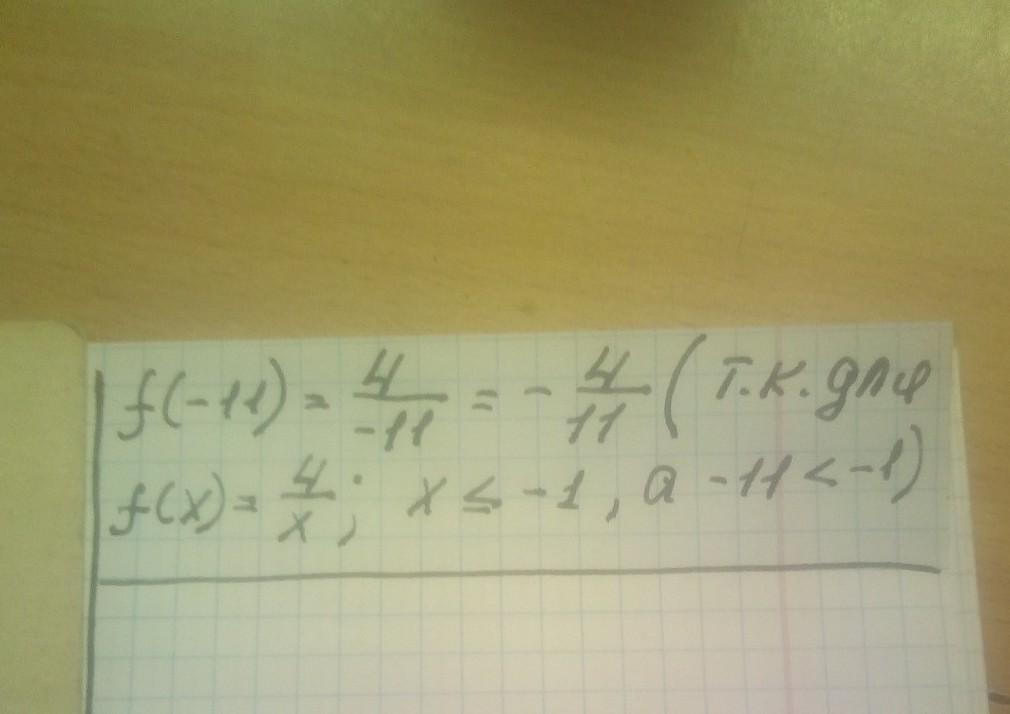 f(-11) = 4/-11 = - 4/11 ( т.к. для
f(x) = 4/x; x ≤ -1, а -11 < -1)